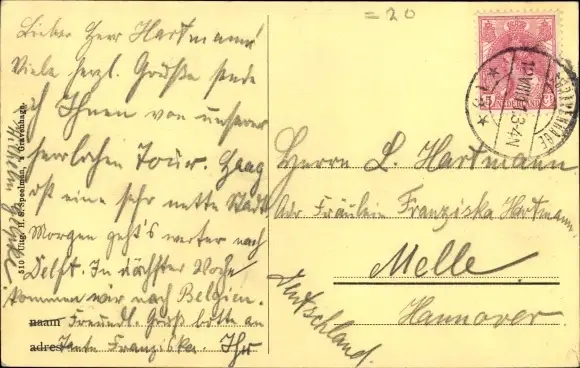 = 20
Lieber Herr Hartmann!
Viele herzl. Grüße sende
ich Ihnen von unserer
herrlichen Tour. Haag
ist eine sehr nette Stadt
Morgen geht's weiter nach
Delft. In nächster Woche
kommen wir nach Belgien.
Freundl. Gruß bitte an
Tante Franziska. Ihr
Wilhelm
naam
adres
510 Uitg. H. S. Speelman, 's Gravenhage.
NEDERLAND
'S-GRAVENHAGE
12 VIII 3-4N
Herrn L. Hartmann
Adr Fräulein Franziska Hartmann
Melle
Hannover
Deutschland.